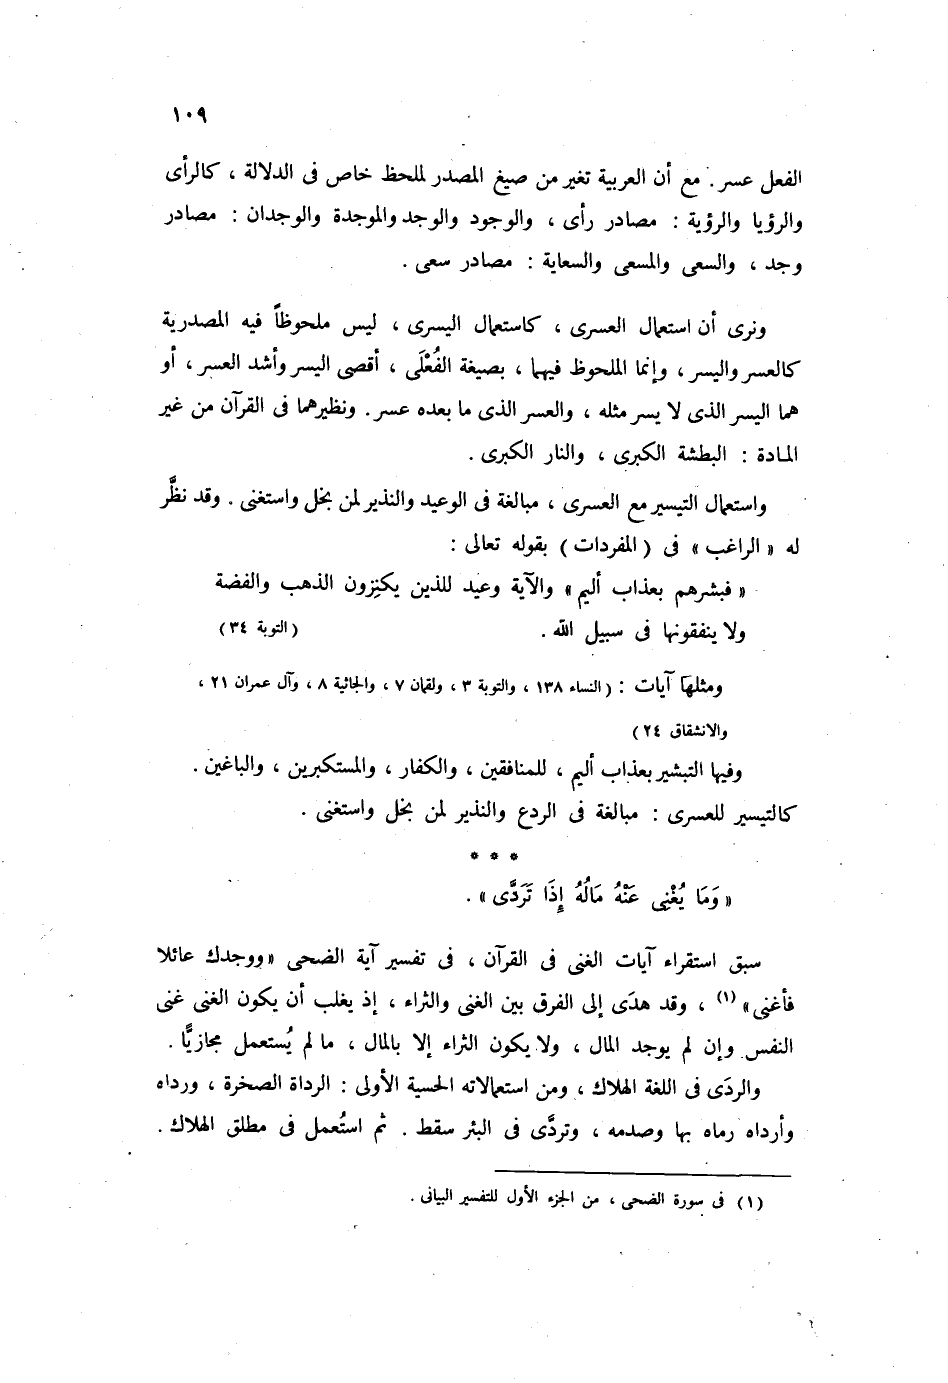 ١٠٩
الفعل عسر. مع أن العربية تغير من صيغ المصدر لملحظ خاص فى الدلالة ، كالرأى
والرؤيا والرؤية : مصادر رأى ، والوجود والوجد والموجدة والوجدان : مصادر
وجد ، والسعى والمسعى والسعاية : مصادر سعى .
ونرى أن استعمال العسرى ، كاستعمال اليسرى ، ليس ملحوظاً فيه المصدرية
كالعسر واليسر ، وإنما الملحوظ فيهما ، بصيغة الفُعْلَى ، أقصى اليسر وأشد العسر ، أو
هما اليسر الذى لا يسر مثله ، والعسر الذى ما بعده عسر. ونظيرهما فى القرآن من غير
المادة : البطشة الكبرى ، والنار الكبرى .
واستعمال التيسير مع العسرى ، مبالغة فى الوعيد والنذير لمن بخل واستغنى . وقد نظَّر
له « الراغب » فى ( المفردات ) بقوله تعالى :
« فبشرهم بعذاب أليم » والآية وعيد للذين يكنِزون الذهب والفضة
ولا ينفقونها فى سبيل الله . (التوبة ٣٤)
ومثلها آيات : ( النساء ١٣٨ ، والتوبة ٣ ، ولقمان ٧ ، والجاثية ٨ ، وآل عمران ٢١ ،
والانشقاق ٢٤)
وفيها التبشير بعذاب أليم ، للمنافقين ، والكفار ، والمستكبرين ، والباغين .
كالتيسير للعسرى : مبالغة فى الردع والنذير لمن بخل واستغنى .
* * *
« وَمَا يُغْنِى عَنْهُ مَالُهُ إِذَا تَرَدَّى » .
سبق استقراء آيات الغنى فى القرآن ، فى تفسير آية الضحى « ووجدك عائلا
فأغنى » (١) ، وقد هدَى إلى الفرق بين الغنى والثراء ، إذ يغلب أن يكون الغنى غنى
النفس وإن لم يوجد المال ، ولا يكون الثراء إلا بالمال ، ما لم يُستعمل مجازيًّا .
والردَى فى اللغة الهلاك ، ومن استعمالاته الحسية الأولى : الرداة الصخرة ، ورداه
وأرداه رماه بها وصدمه ، وتردَّى فى البئر سقط . ثم استُعمل فى مطلق الهلاك .
(١) فى سورة الضحى ، من الجزء الأول للتفسير البيانى .